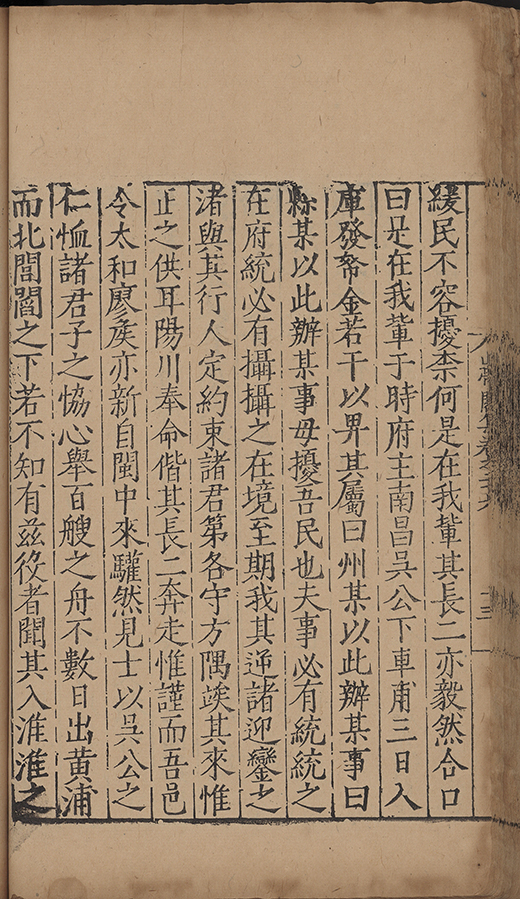 緩民不容擾柰何是在我輩其長二亦毅然合口
曰是在我輩于時府主南昌吳公下車甫三日入
庫發帑金若干以畀其屬曰州某以此辦某事曰
縣某以此辦某事毋擾吾民也夫事必有統統之
在府統必有攝攝之在境至期我其迎諸迎鑾之
渚與其行人定約束諸君第各守方隅竢其來惟
正之供耳陽川奉命偕其長二奔走惟謹而吾邑
令太和廖矦亦新自閩中來驩然見士以吳公之
仁恤諸君子之恊心舉百艘之舟不數日出黄浦
而北閭閻之下若不知有兹役者聞其入淮淮之